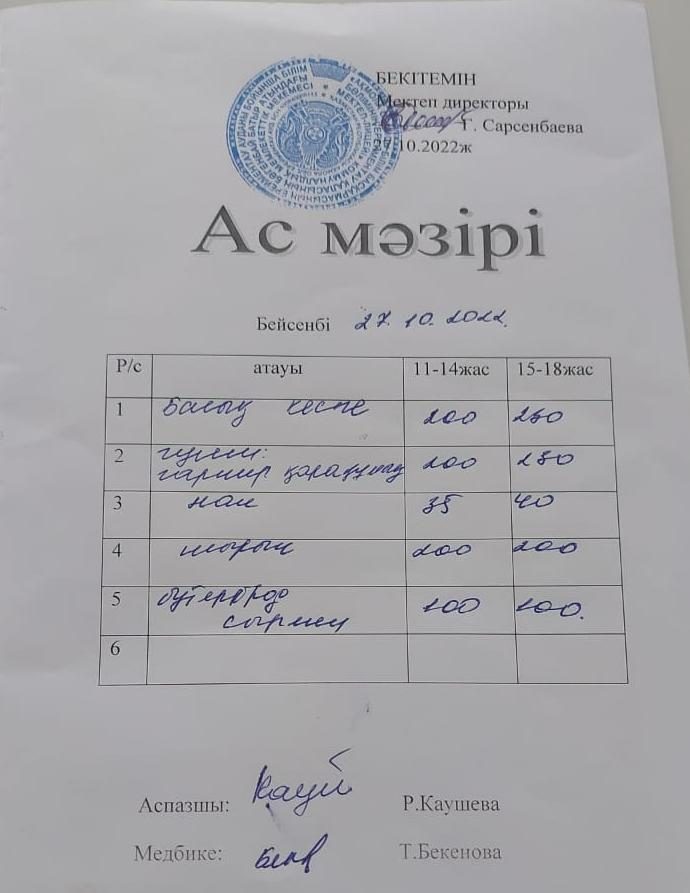 БЕКІТЕМІН
Мектеп директоры
Г. Сарсенбаева
27.10.2022ж
Ас мәзірі
Бейсенбі 27.10.2022.
Р/с атауы 11-14жас 15-18жас
1 Балық кеспе 200 250
2 гуляш:
гарнир қарақұмық 200 250
3 нан 35 40
4 шырын 200 200
5 бутерброд
сырмен 100 100.
6
Аспазшы: Кауш Р.Каушева
Медбике: Т.Бекенова